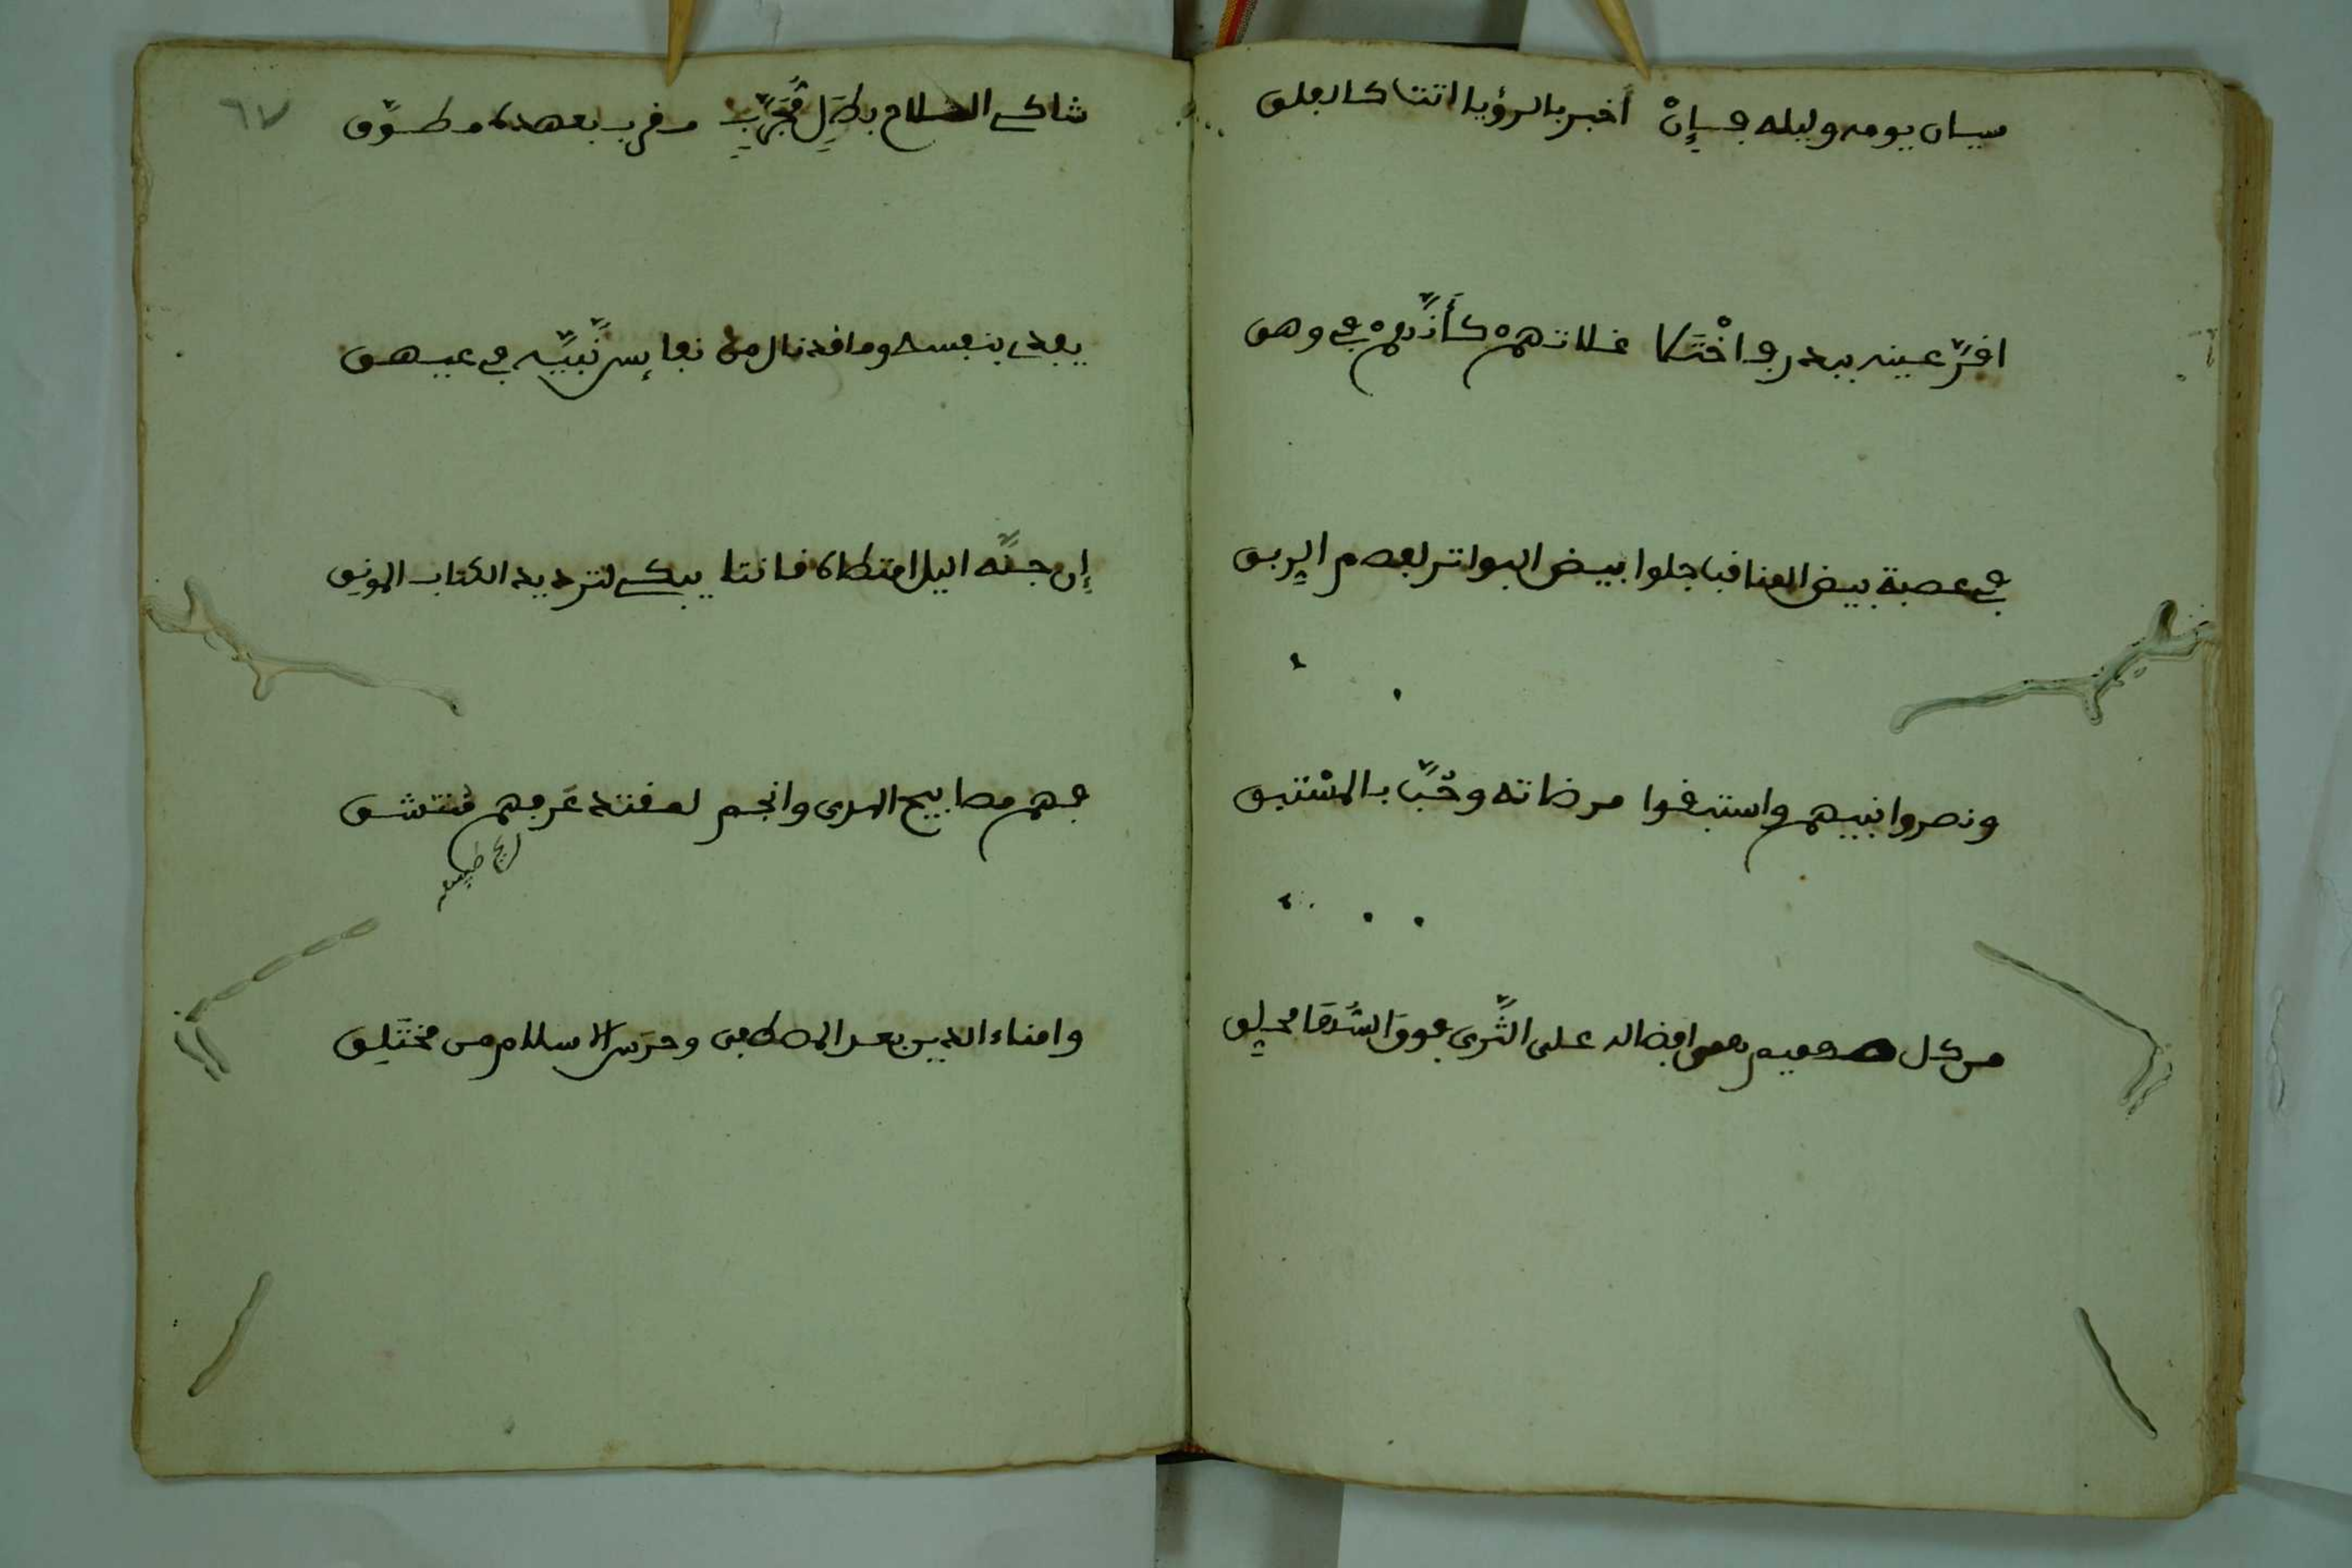 سيان يومه وليله فإن أخبر بالرؤيا اتتنا كالفلق
اقر عينه ببدر واختلا غلاتهم كأنهم في وهق
في عصبة بيض المناقب اجلوا بيض البواتر لفصم الربق
ونصروا نبيهم واستبقوا مرضاته وحب بالمستبق
من كل همى افضاله على الثرى فوق السما محلق
٦٧
شاكي السلاح بطل مجرب مقرب بعهده مطوق
يفدى بنفسه وما قد نال من نفايس نبيه في عيهق
إن جنه اليل امتطاه قانتا يبكي لترديد الكتاب المونق
فهم مصابيح الهدى وانجم لمقتد عرفهم منتشق
طيبه
وامناء الدين بعد المصطفى وحرس الاسلام من مختلق